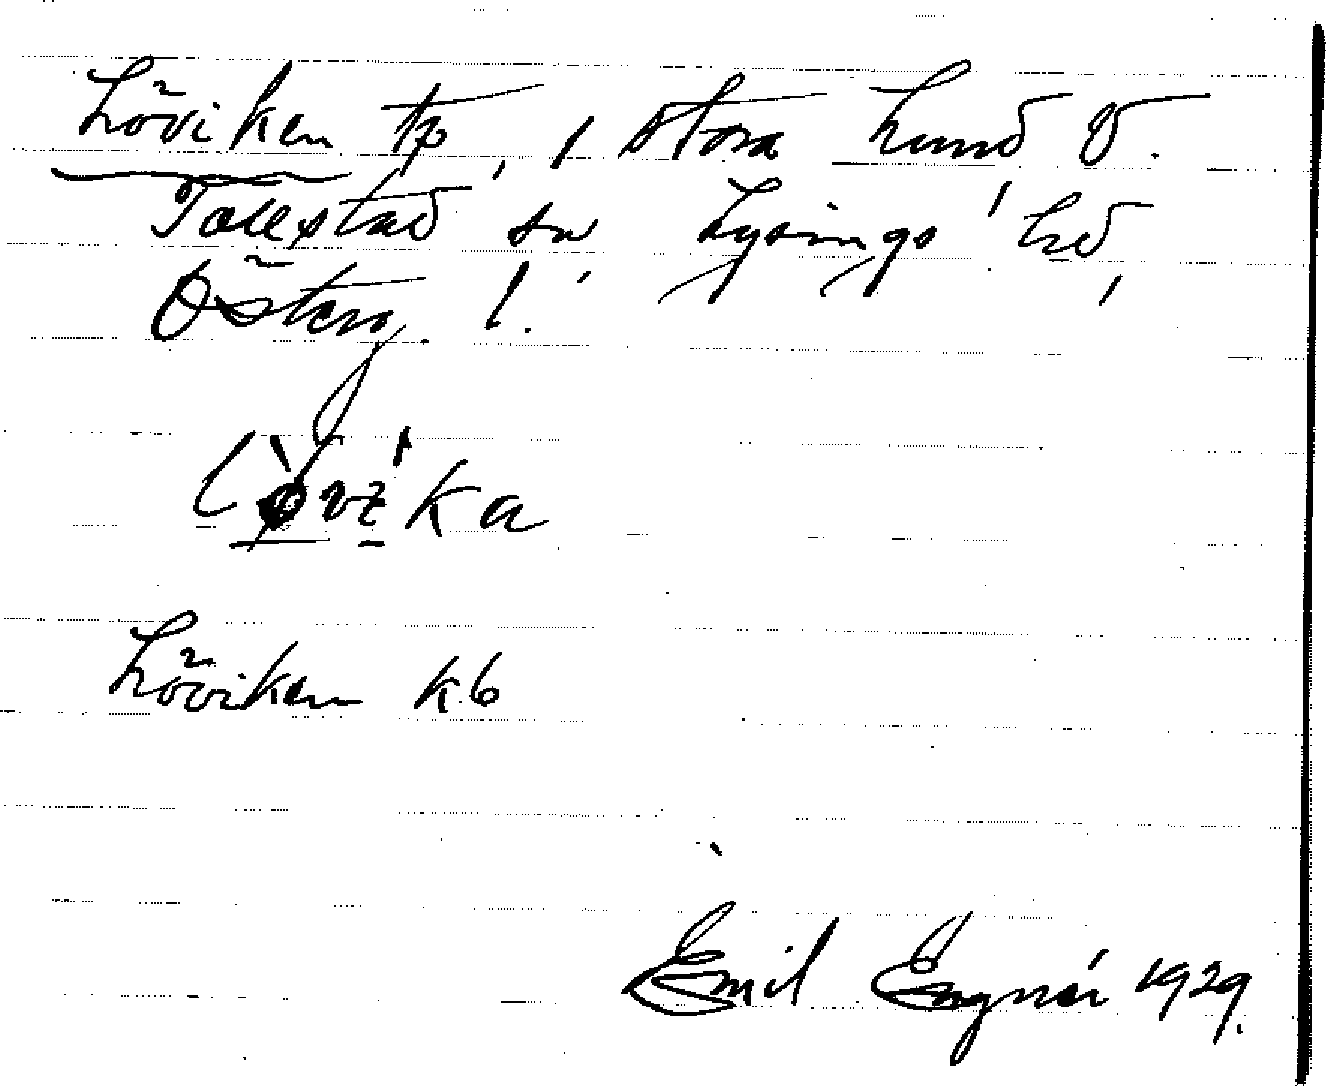 Löviken tp, l Stora Lund V.
Tollstad sn, Lysings hd,
Österg. l.
Löviken kb
Emil Engnér 1929.